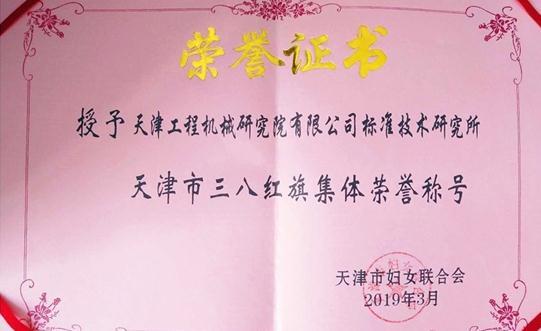 荣誉证书
授予天津工程机械研究院有限公司标准技术研究所
天津市三八红旗集体荣誉称号
天津市妇女联合会
2019年3月